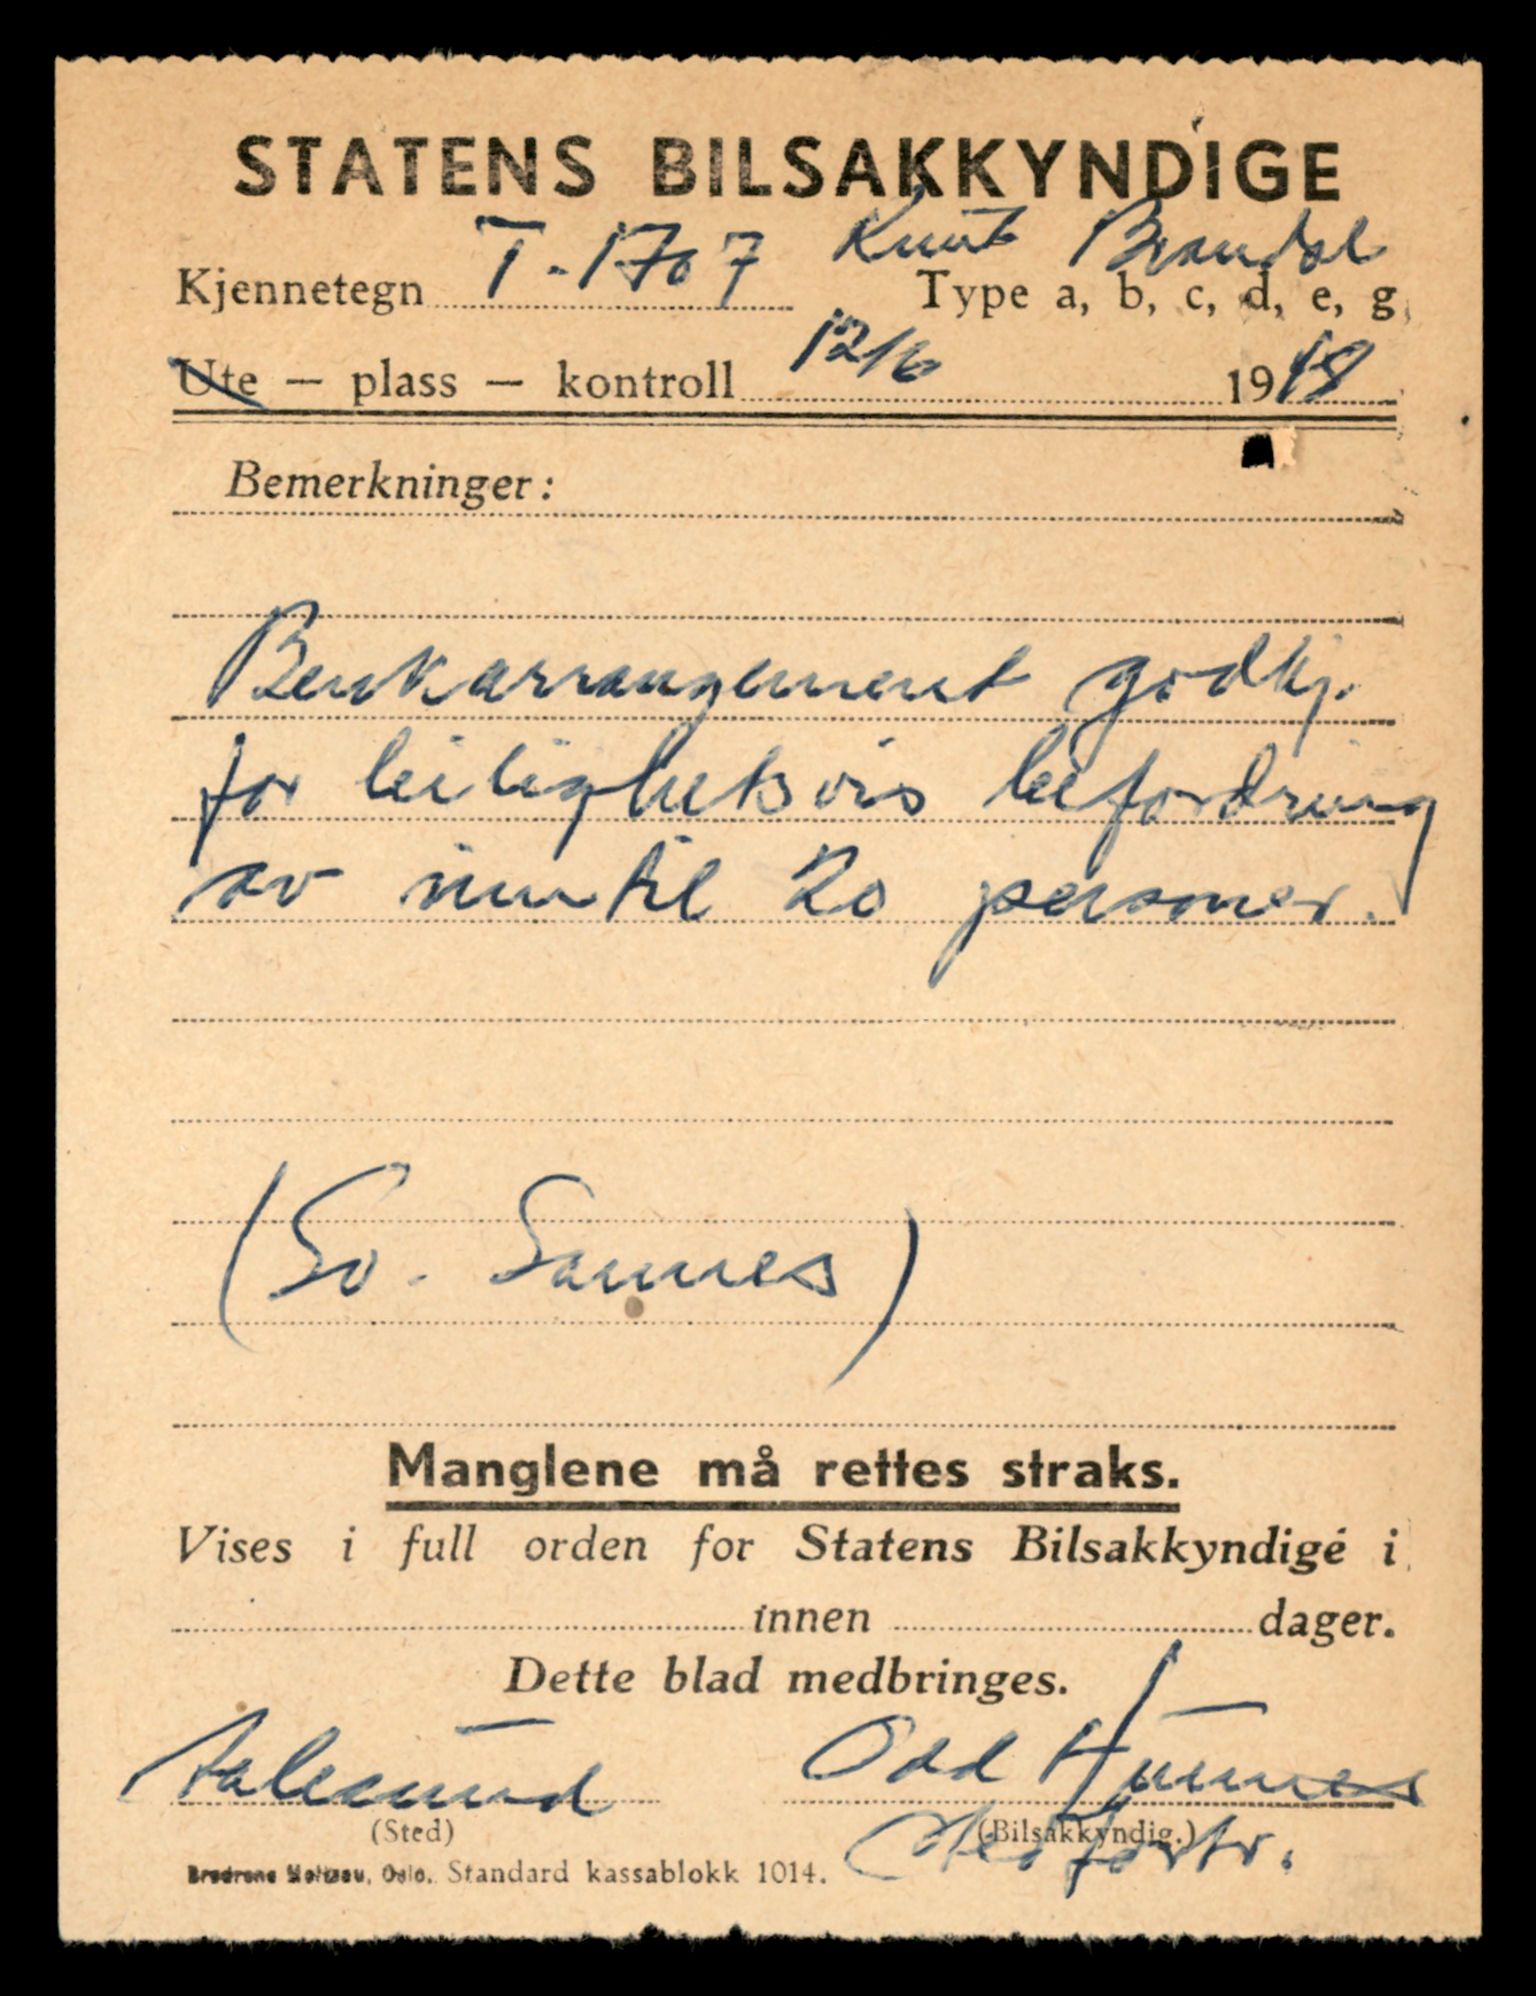 STATENS BILSAKKYNDIGE
Kjennetegn T-1707 Knut Brandal
Type a, b, c, d, e, g
Ute — plass — kontroll 12/6 1948
Bemerkninger:
Benkarrangement godkj.
for leilighetsvis befordring
av inntil 20 personer.
(Sv. Sannes)
Manglene må rettes straks.
Vises i full orden for Statens Bilsakkyndige i
innen dager.
Dette blad medbringes.
Aalesund Odd
(Sted) (Bilsakkyndig.)
Brødrene Moltzau, Oslo. Standard kassablokk 1014.